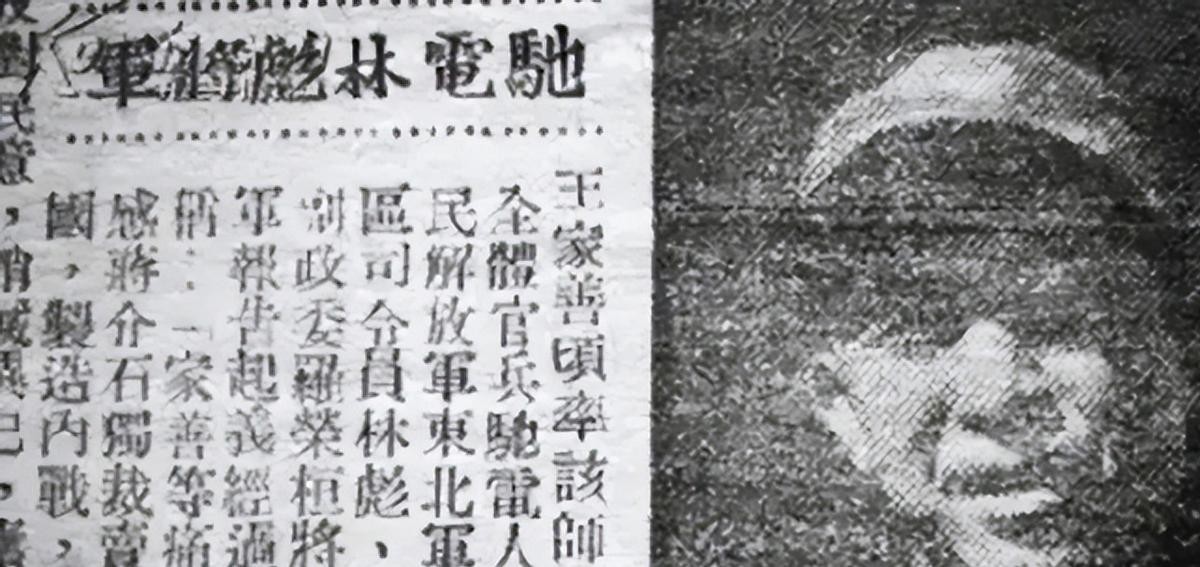 馳電林彪將軍
王家善頃率該師
全體官兵馳電人
民解放軍東北軍
區司令員林彪、
副政委羅榮桓將
軍報告起義經過
稱：「家善等痛
感蔣介石獨裁賣
國，製造內戰，
，消滅異己，